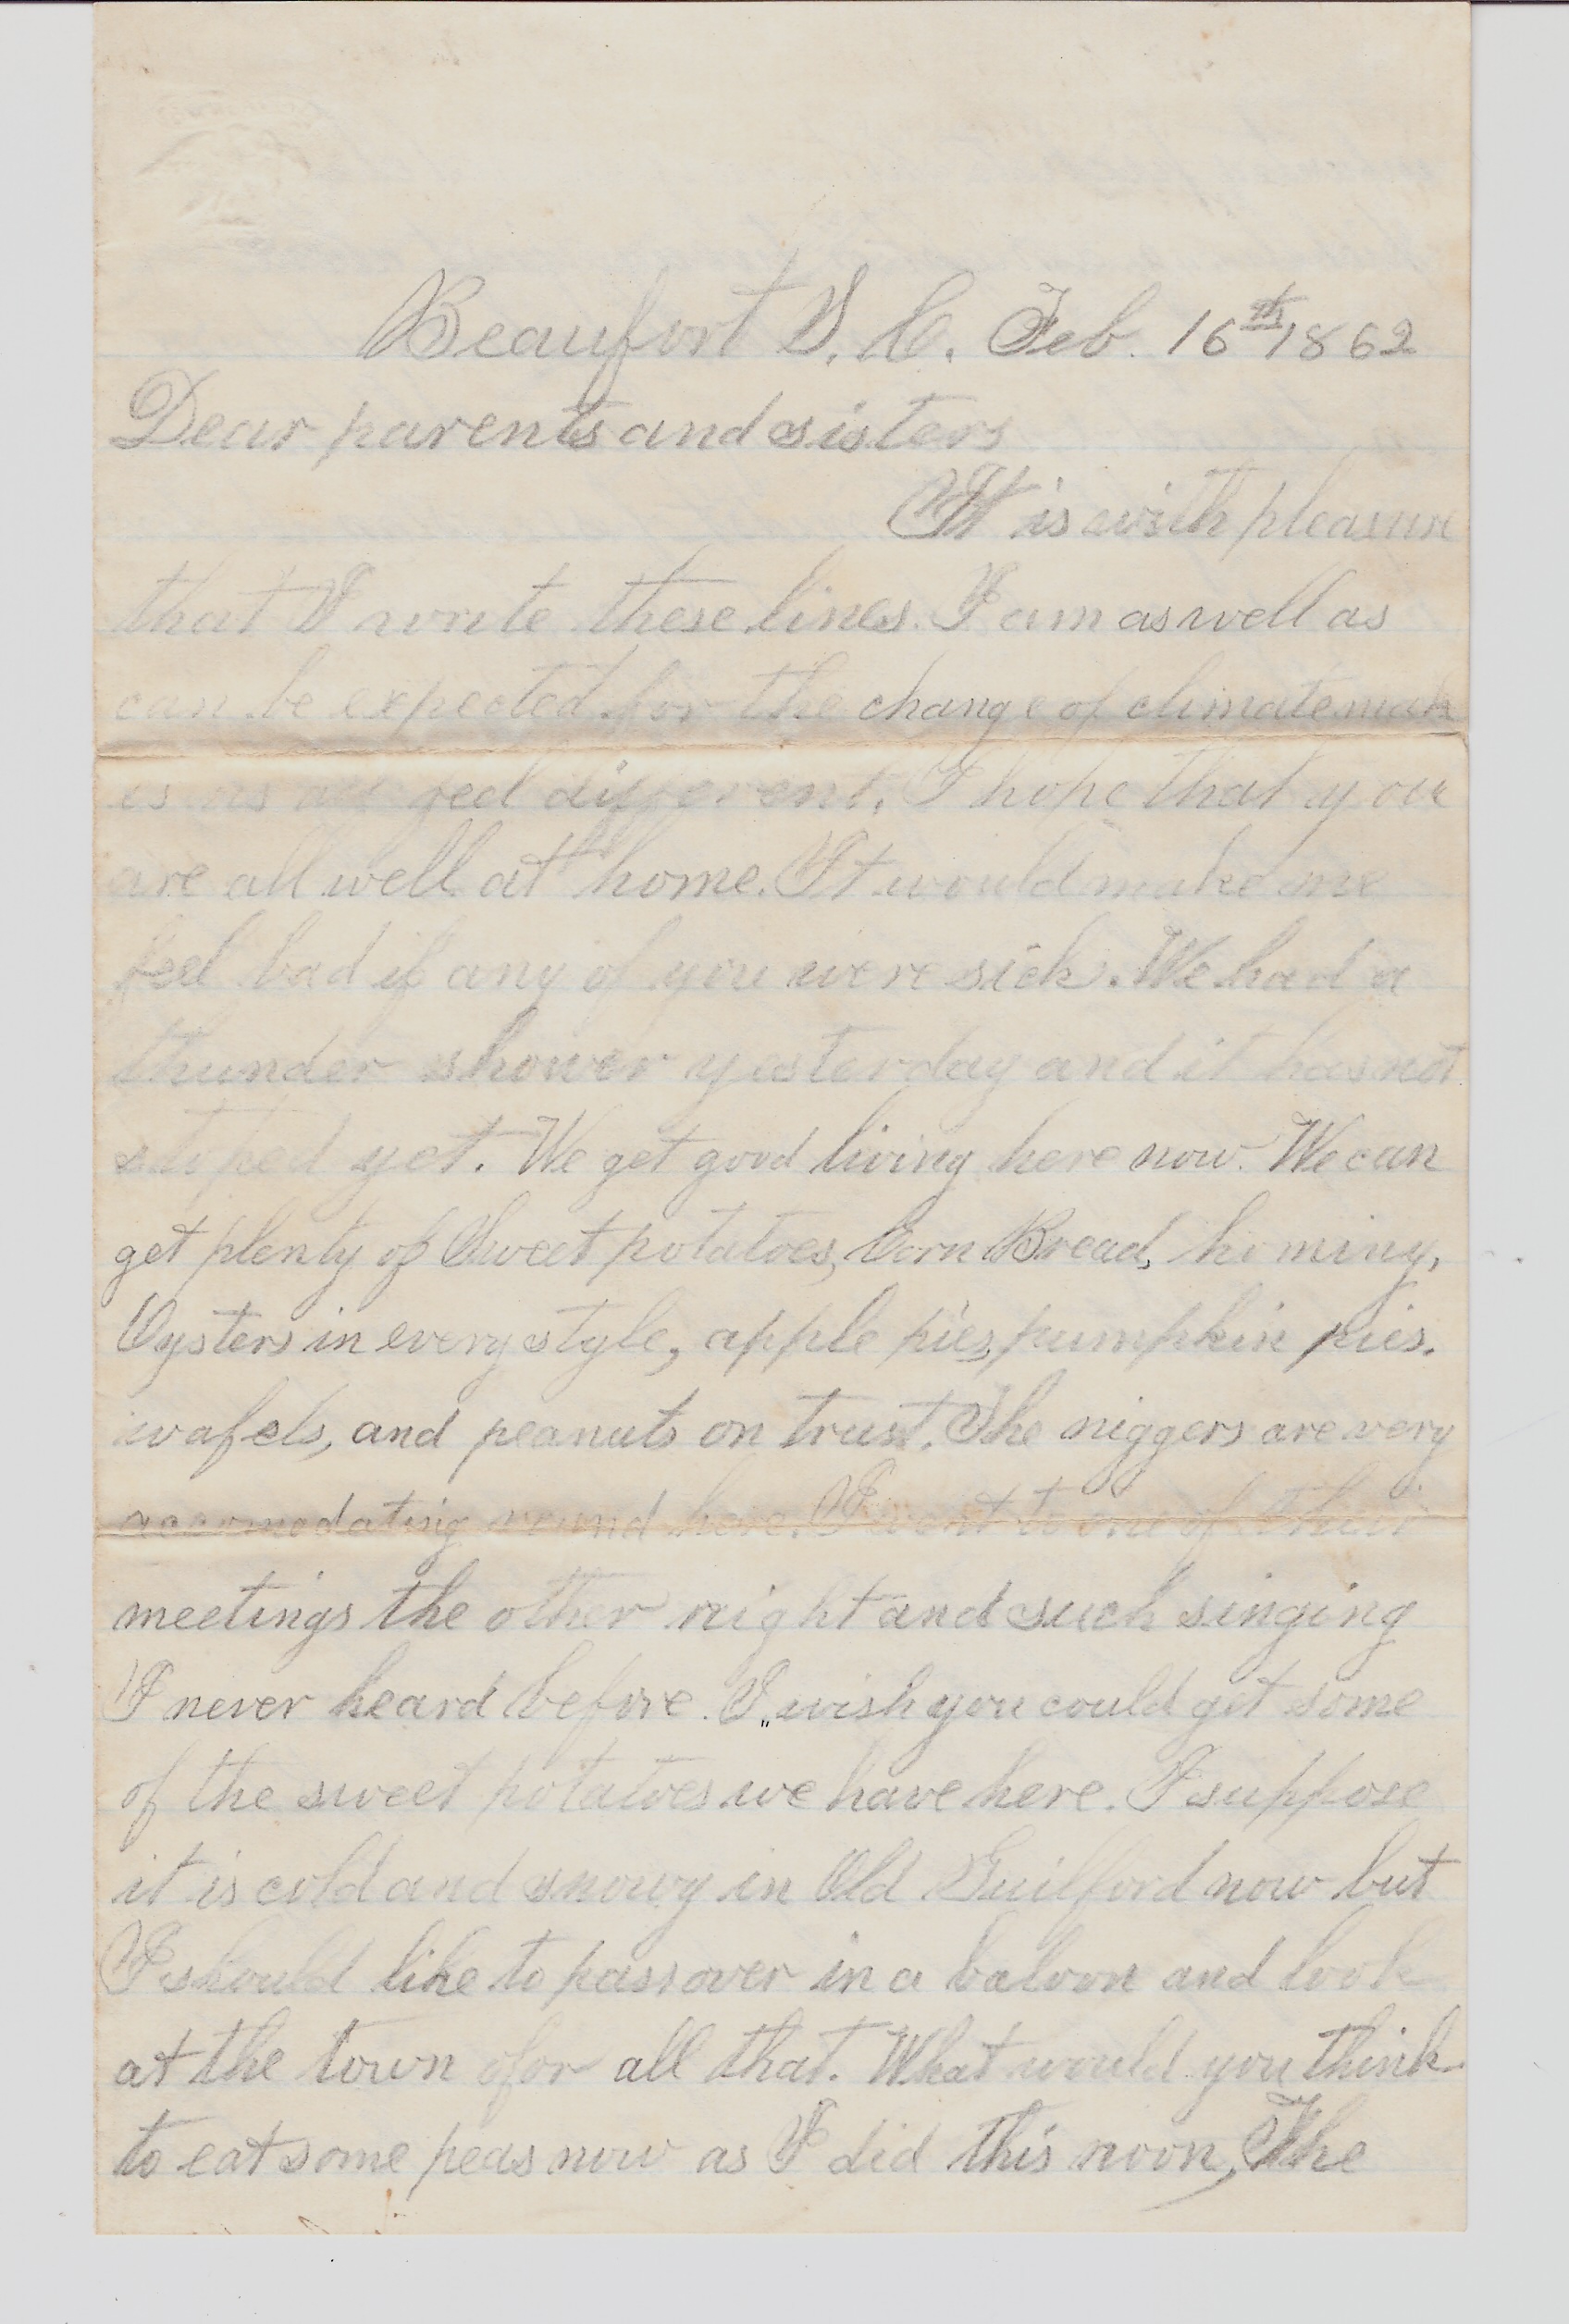 Beaufort S. C. Feb. 16th 1862
Dear parents and sisters
It is with pleasure
that I write these lines. I am as well as
can be expected for the change of climate
different. I hope that you
are all well at home. It would make me
feel bad if any of you were sick. We had a
thunder shower yesterday and it has not
stoped yet. We get good living here now. We can
get plenty of Sweet potatoes, Corn Bread, hominy,
Oysters in every style, apple pies, pumpkin pies.
wafels, and peanuts on trust. The niggers are very
accomodating round here. I went to one of their
meetings the other night and such singing
I never heard before. I,, wish you could get some
of the sweet potatoes we have here. I suppose
it is cold and snowy in Old Guilford now but
I should like to pass over in a baloon and look
at the town for all that. What would you think
to eat some peas now as I did this noon, The